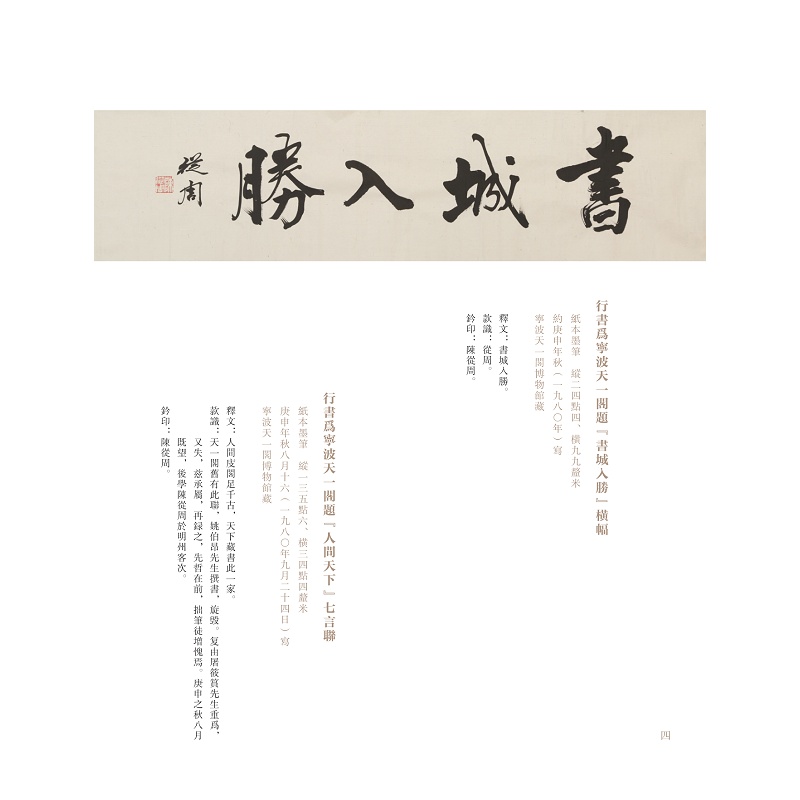 書城入勝
從周
行書爲寧波天一閣題『書城入勝』橫幅
紙本墨筆 縱二四點四、橫九九釐米
約庚申年秋（一九八〇年）寫
寧波天一閣博物館藏
釋文：書城入勝。
款識：從周。
鈐印：陳從周。
行書爲寧波天一閣題『人間天下』七言聯
紙本墨筆 縱一三五點六、橫三四點四釐米
庚申年秋八月十六（一九八〇年九月二十四日）寫
寧波天一閣博物館藏
釋文：人間庋閣足千古，天下藏書此一家。
款識：天一閣舊有此聯，姚伯昂先生撰書，旋毀。复由屠筱篔先生重爲，
又失，兹承屬，再録之，先哲在前，拙筆徒增愧焉。庚申之秋八月
既望，後學陳從周於明州客次。
鈐印：陳從周。
四